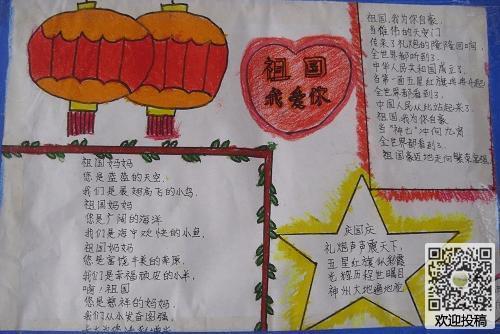 祖国
我爱你
祖国,我为你自豪,
当雄伟的天安门
传来了礼炮的隆隆回响,
全世界都听到了.
中华人民共和国成立了.
当第一面五星红旗冉冉升起
全世界都看到了.
中国人民从此站起来了.
祖国,我为你自豪,
当“神七”冲向九霄
全世界都看到了.
祖国妈妈
您是蓝蓝的天空.
我们是展翅高飞的小鸟,
祖国妈妈
您是广阔的海洋
我们是海中欢快的小鱼,
祖国妈妈
您是富饶丰美的草原,
我们是幸福顽皮的小羊,
啊!祖国
您是慈祥的妈妈,
我们从小发奋图强,
庆国庆
礼炮声声震天下,
五星红旗似彩霞
光辉历程世瞩目
神州大地遍地花
欢迎投稿